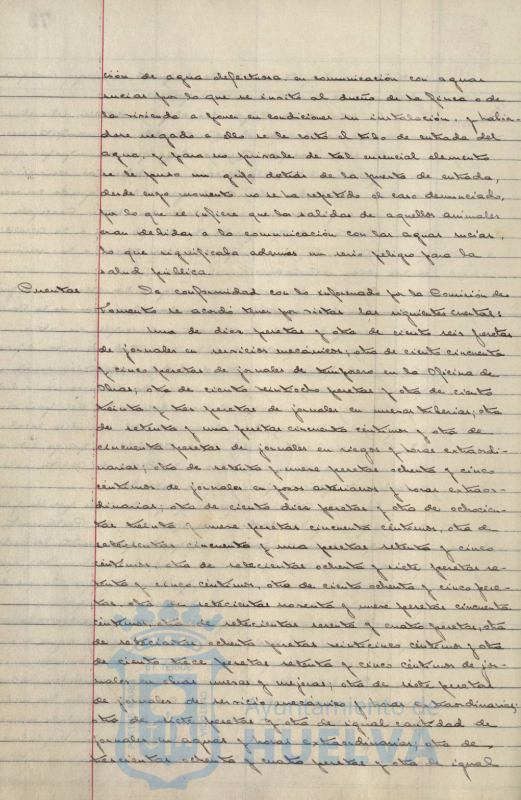 ción de agua defectuosa en comunicación con aguas
sucias por lo que se invitó al dueño de la finca o de
la vivienda a poner en condiciones su instalación, y habien-
dose negado a ello se le cortó el tubo de entrada del
agua, y para no privarle de tal esencial elemento
se le puso un grifo detrás de la puerta de entrada,
desde cuyo momento no se ha repetido el caso denunciado,
por lo que se infiere que las salidas de aquellos animales
eran debidas a la comunicación con las aguas sucias,
lo que significaba ademas un serio peligro para la
salud pública.
Cuentas De conformidad con lo informado por la Comisión de
Fomento se acordó tener por vistas las siguientes cuentas:
Una de diez pesetas y otra de ciento seis pesetas
de jornales en servicios mecánicos; otra de ciento cincuenta
y cinco pesetas de jornales de temporero en la Oficina de
Obras; otra de ciento veintiocho pesetas y otra de ciento
treinta y tres pesetas de jornales en nuevas tuberias; otra
de setenta y una pesetas cincuenta céntimos y otra de
cincuenta pesetas de jornales en riegos y horas extraordi-
narias; otra de setenta y nueve pesetas ochenta y cinco
céntimos de jornales en pozos artesianos y horas extraor-
dinarias; otra de ciento diez pesetas y otra de ochocien-
tas treinta y nueve pesetas cincuenta céntimos, otra de
setecientas cincuenta y una pesetas setenta y cinco
céntimos, otra de setecientas ochenta y siete pesetas se-
tenta y cinco céntimos, otra de ciento ochenta y cinco pese-
tas otra de setecientas noventa y nueve pesetas cincuenta
céntimos, otra de setecientas sesenta y cuatro pesetas, otra
de setecientas ochenta pesetas veinticinco céntimos y otra
de ciento trece pesetas setenta y cinco céntimos de jor-
nales en obras nuevas y mejoras; otra de siete pesetas
de jornales de servicio mecánico y horas extraordinarias;
otra de siete pesetas y otra de igual cantidad de
jornales en aguas y horas extraordinarias; otra de
trescientas ochenta y cuatro pesetas y otra de igual
Ayuntamiento de
HUELVA